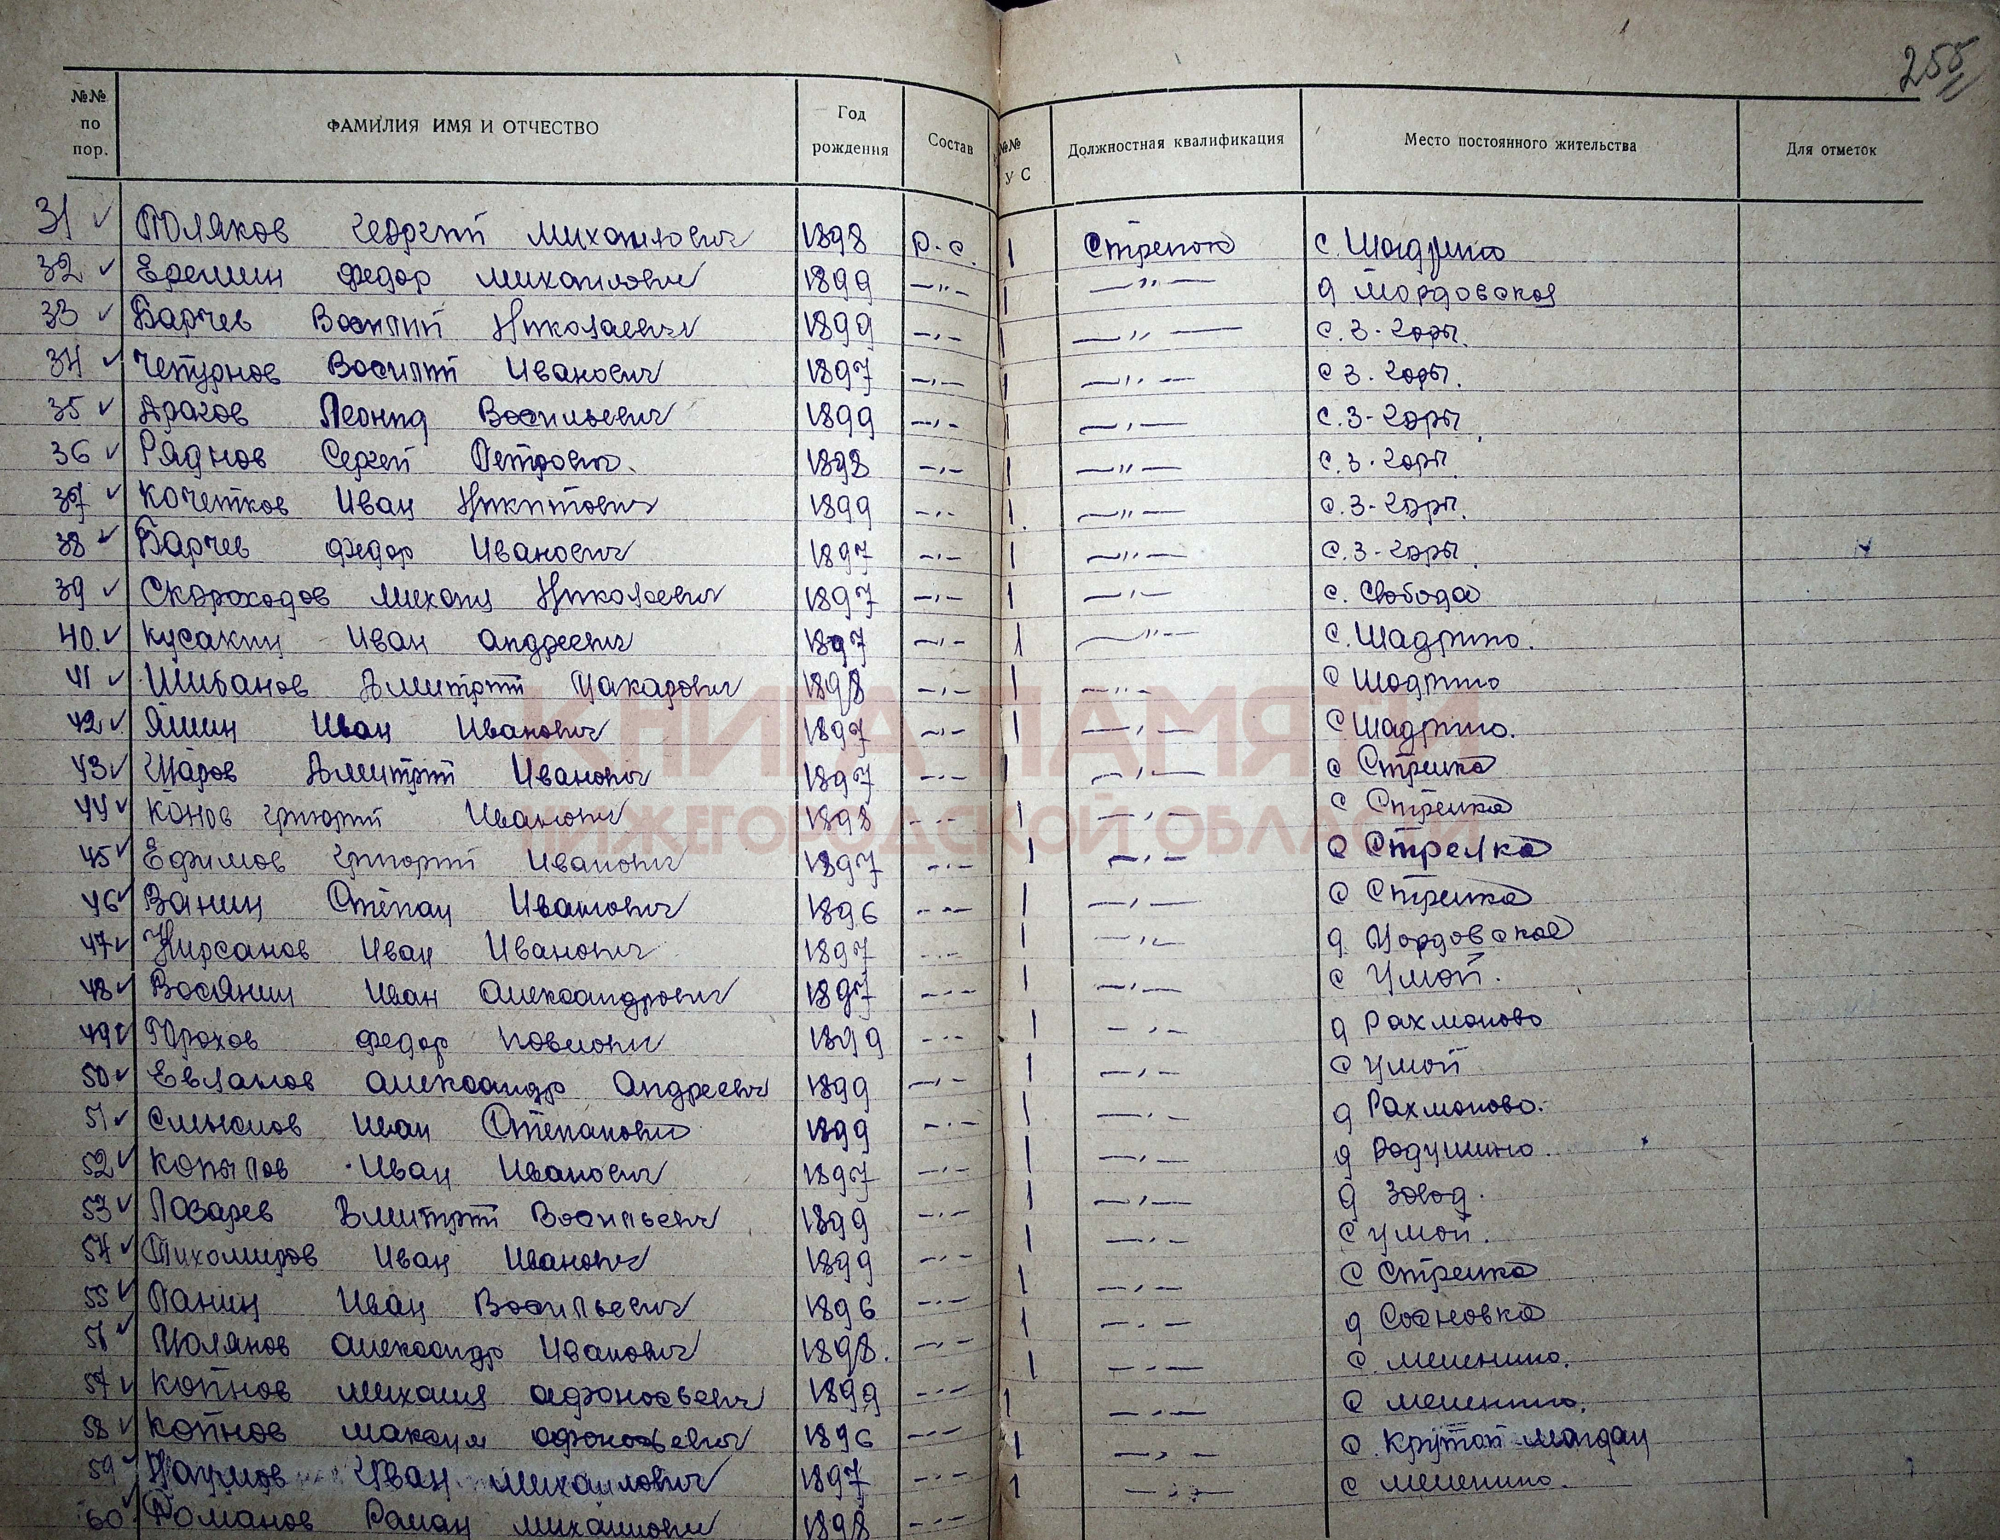 255
№№ по пор. ФАМИЛИЯ ИМЯ И ОТЧЕСТВО Год рождения Состав №№ У С Должностная квалификация Место постоянного жительства Для отметок
31 Поляков Георгий Михайлович 1898 р.с. 1 Стрелок с. Шадрино
32 Еремин Федор Михайлович 1899 —"— 1 —"— д Мордовское
33 Барчев Василий Николаевич 1899 —"— 1 —"— с. З-Горы.
34 Чепурнов Василий Иванович 1897 —"— 1 —"— с З. Горы.
35 Леонид Васильевич 1899 —"— 1 —"— с. З-Горы.
36 Ряднов Сергей Петрович. 1898 —"— 1 —"— с. З. Горы.
37 Кочетков Иван Никитович 1899 —"— 1. —"— с. З-Горы.
38 Барчев Федор Иванович 1897 —"— 1 —"— с. З-Горы.
39 Скороходов Михаил Николаевич 1897 —"— 1 —"— с. Свобода
40. Кусакин Иван Андреевич 1897 —"— 1 —"— с. Шадрино.
41 Шибанов Дмитрий Макарович 1898 —"— 1 —"— с Шадрино
42 Яшин Иван Иванович 1897 —"— 1 —"— с Шадрино.
43 Щаров Дмитрий Иванович 1897 —"— 1 —"— с Стрелка
44 Конов Григорий Иванович 1898 —"— 1 —"— с Стрелка
45 Ефимов Григорий Иванович 1897 —"— 1 —"— с Стрелка
46 Ванин Степан Иванович 1896 —"— 1 —"— с Стрелка
47 Кирсанов Иван Иванович 1897 —"— 1 —"— д. Мордовское
48 Васянин Иван Александрович 1897 —"— 1 —"— с Умой.
49 Прохов Федор Павлович 1899 —"— 1 —"— д Рахманово
50 Евланов Александр Андреевич 1899 —"— 1 —"— с Умой
51 Иван Степанович 1899 —"— 1 —"— д Рахманово.
52 Копылов Иван Иванович 1897 —"— 1 —"— д Родушино.
53 Лазарев Дмитрий Васильевич 1899 —"— 1 —"— д Завод.
54 Тихомиров Иван Иванович 1899 —"— —"— с Умой.
55 Панин Иван Васильевич 1896 —"— 1 —"— с Стрелка
56 Полянов Александр Иванович 1898. —"— 1 —"— д Сосновка
57 Копнов Михаил Афонасьевич 1899 —"— 1 —"— с. Меленино.
58 Копнов Максим Афонасьевич 1896 —"— 1 —"— с Меленино.
59 Наумов Иван Михайлович 1897 —"— 1 —"— с. Крутой Майдан
60. Романов Роман Михайлович 1898 —"— 1 —"— с Меленино.
КНИГА ПАМЯТИ
НИЖЕГОРОДСКОЙ ОБЛАСТИ